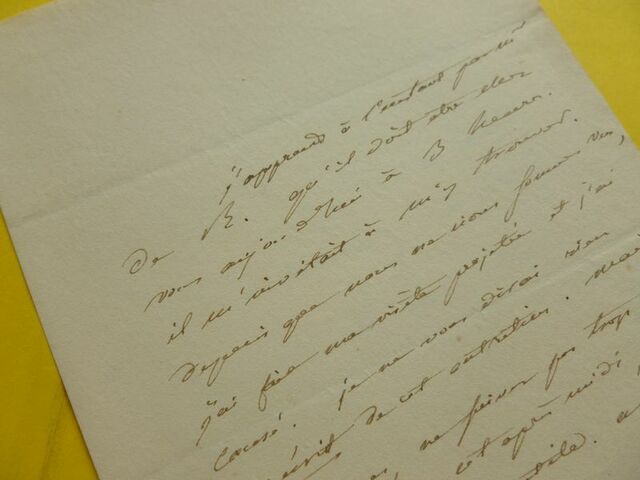 j'apprends à l'instant par un
de B. qu'il doit être chez
vous aujourd'hui à 3 heures.
il m'invitait à m'y trouver.
depuis que nous ne nous sommes vus,
j'ai fait ma visite projetée et j'ai
causé. je ne vous dirai rien
de cet entretien. mais
ne faisons pas trop
cet après midi,